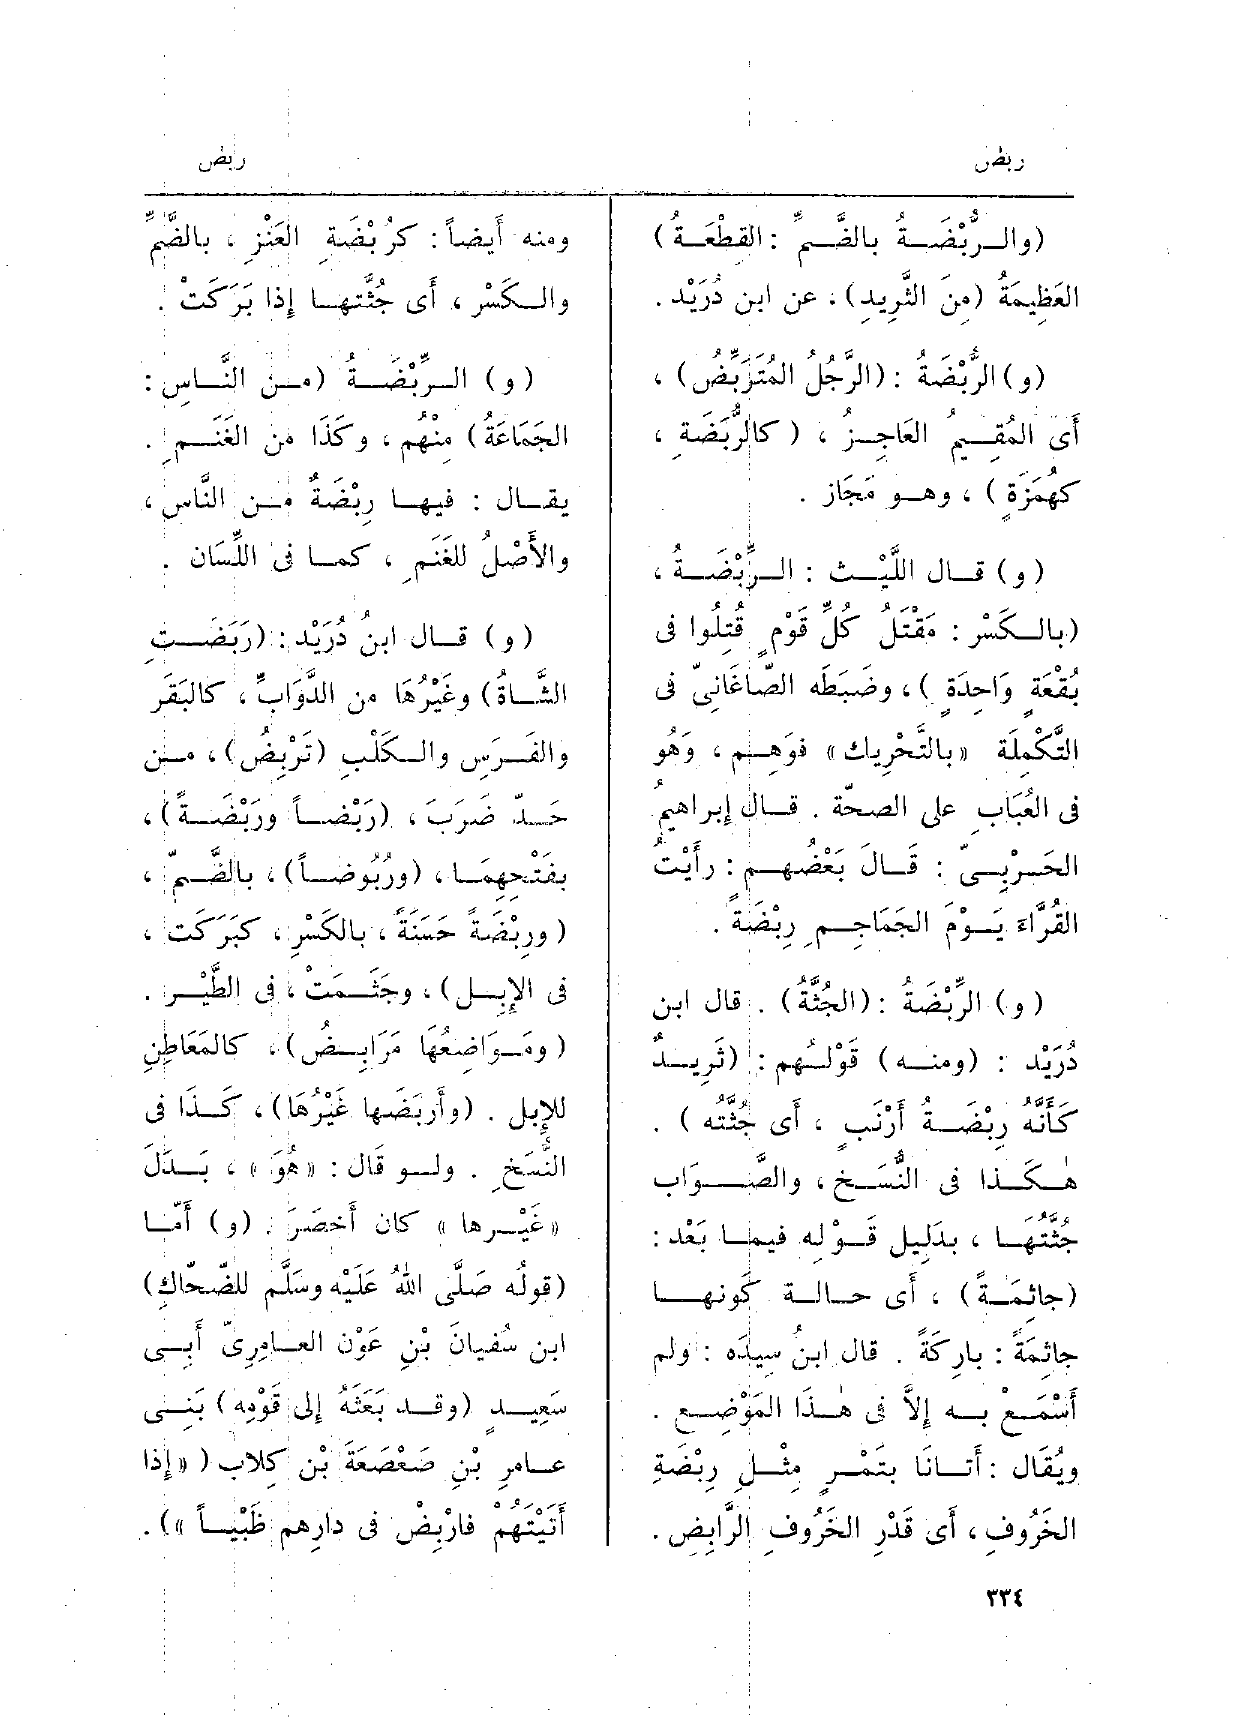 ربض
ربض
(والرُّبْضَةُ بالضَّمِّ : القِطْعَةُ)
العَظِيمَةُ (مِنَ الثَّرِيدِ) ، عن ابن دُرَيْد .
(و) الرُّبْضَةُ : (الرَّجُلُ المُتَرَبِّضُ) ،
أَى المُقِيمُ العَاجِزُ ، (كالرُّبَضَةِ ،
كهُمَزَةٍ ) ، وهو مَجَاز .
(و) قال اللَّيْث : الرِّبْضَةُ ،
(بالكَسْر : مَقْتَلُ كُلِّ قَوْمٍ قُتِلُوا فى
بُقْعَةٍ وَاحِدَةٍ ) ، وضَبَطَه الصّاغَانِىّ فى
التَّكْمِلَة «بالتَّحْرِيك» فوَهِم ، وَهُو
فى العُبَابِ على الصحّة . قال إبراهيمُ
الحَرْبِىّ : قَالَ بَعْضُهم : رأَيْتُ
القُرَّاءَ يَوْمَ الجَمَاجِمِ رِبْضَةً .
(و) الرِّبْضَةُ : (الجُثَّةُ) . قال ابن
دُرَيْد : (ومنه) قَوْلُهم : (ثَرِيدٌ
كَأَنَّهُ رِبْضَةُ أَرْنَبٍ ، أَى جُثَّتُه ) .
هٰكَذا فى النُّسَخِ ، والصَّوَاب
جُثَّتُهَا ، بدَلِيل قَوْلِه فيما بَعْد :
(جاثِمَةً) ، أَى حالة كَونها
جاثِمَةً : بارِكَةً . قال ابنُ سِيدَه : ولم
أَسْمَعْ به إلاَّ فى هٰذَا المَوْضِعِ .
ويُقَال : أَتانَا بتَمْرٍ مِثْلِ رِبْضَةِ
الخَرُوفِ ، أَى قَدْرِ الخَرُوفِ الرَّابِضِ .
ومنه أَيضاً : كرُبْضَةِ العَنْزِ ، بالضَّمِّ
والكَسْر ، أَى جُثَّتها إذا بَرَكَتْ .
(و) الرِّبْضَةُ (من النَّاسِ :
الجَمَاعَةُ) مِنْهُم ، وكَذَا من الغَنَمِ .
يقال : فيها رِبْضَةٌ من النَّاس ،
والأَصْلُ للغَنَمِ ، كما فى اللِّسَان .
(و) قال ابنُ دُرَيْد : (رَبَضَتِ
الشَّاةُ) وغَيْرُهَا من الدَّوَابِّ ، كالبَقَر
والفَرَسِ والكَلْبِ (تَرْبِضُ) ، من
حَدِّ ضَرَبَ ، (رَبْضاً ورَبْضَةً) ،
بفَتْحِهِمَا ، (ورُبُوضاً) ، بالضَّمِّ ،
(ورِبْضَةً حَسَنَةً ، بالكَسْرِ ، كبَرَكَت ،
فى الإبِل) ، وجَثَمَتْ ، فى الطَّيْر .
(ومَوَاضِعُهَا مَرَابِضُ) ، كالمَعَاطِنِ
للإِبل . (وأَربَضَها غَيْرُهَا) ، كَذَا فى
النُّسَخِ . ولو قال : «هُوَ» ، بَدَلَ
«غَيْرها» كان أَخصَرَ . (و) أَمّا
(قولُه صَلَّى اللهُ عَلَيْه وسَلَّم للضَّحّاكِ)
ابن سُفيانَ بْنِ عَوْن العامِرِىّ أَبِى
سَعِيدٍ (وقد بَعَثَهُ إلى قَوْمِه) بَنِى
عامرِ بْنِ صَعْصَعَةَ بْن كِلاب ( «إذا
أَتَيْتَهُمْ فارْبِضْ فى دارِهم ظَبْياً» ) .
٣٣٤